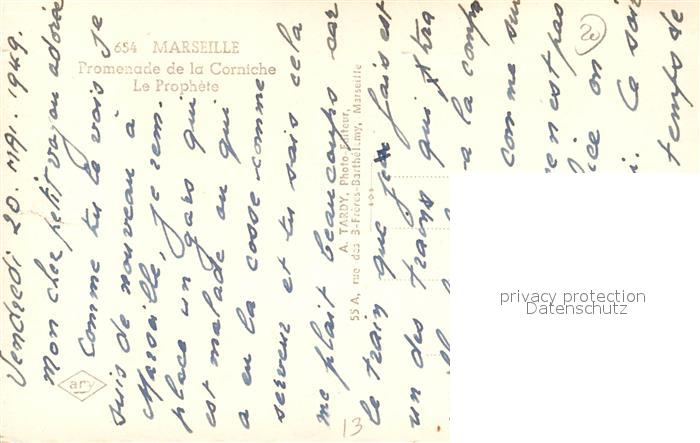 654 MARSEILLE
Promenade de la Corniche
Le Prophète
A. TARDY, Photo-Editeur,
55 A, rue des 3-Frères-Barthélemy, Marseille
ary
Vendredi 20. MAI. 1949.
Mon cher petit voyou adoré
Comme tu le vois je
suis de nouveau à
Marseille, je rem-
place un gars qui
est malade ou qui
a eu la cosse comme
serveur et tu sais cela
me plait beaucoup car
le train que je fais est
un des trains qui tra
la comp
comme sur
n'est pas
ice on
Ce soir
temps de
20
13
privacy protection
Datenschutz